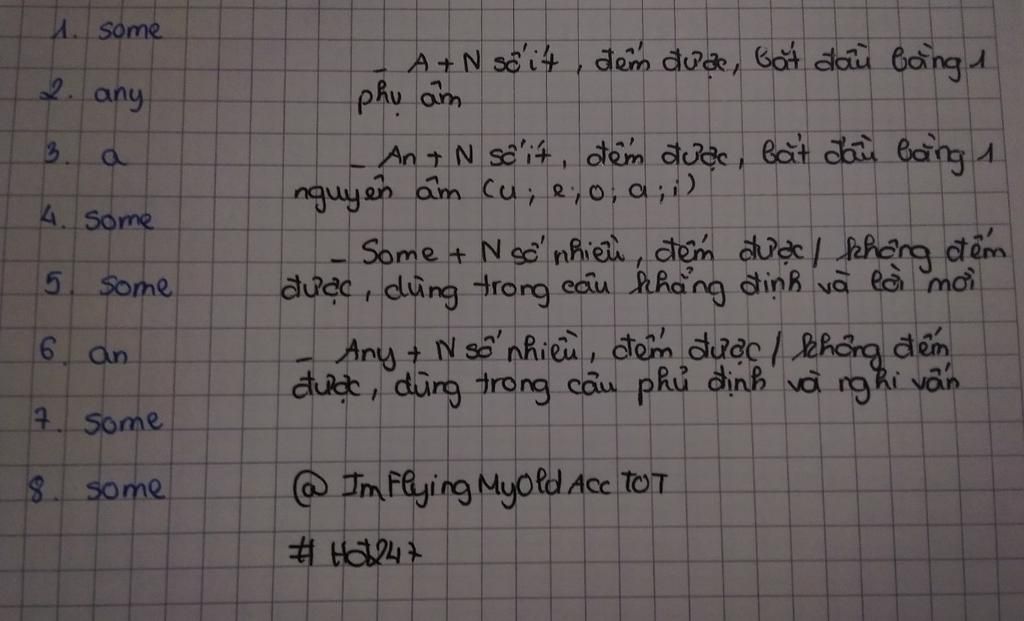 1. some
- A + N số ít, đếm được, bắt đầu bằng 1
2. any
phụ âm
3. a
- An + N số ít, đếm được, bắt đầu bằng 1
nguyên âm (u; e; o; a; i)
4. some
- Some + N số nhiều, đếm được / không đếm
5. some
được, dùng trong câu khẳng định và lời mời
6. an
- Any + N số nhiều, đếm được / không đếm
được, dùng trong câu phủ định và nghi vấn
7. some
8. some
@ ImFlyingMyOldAcc TOT